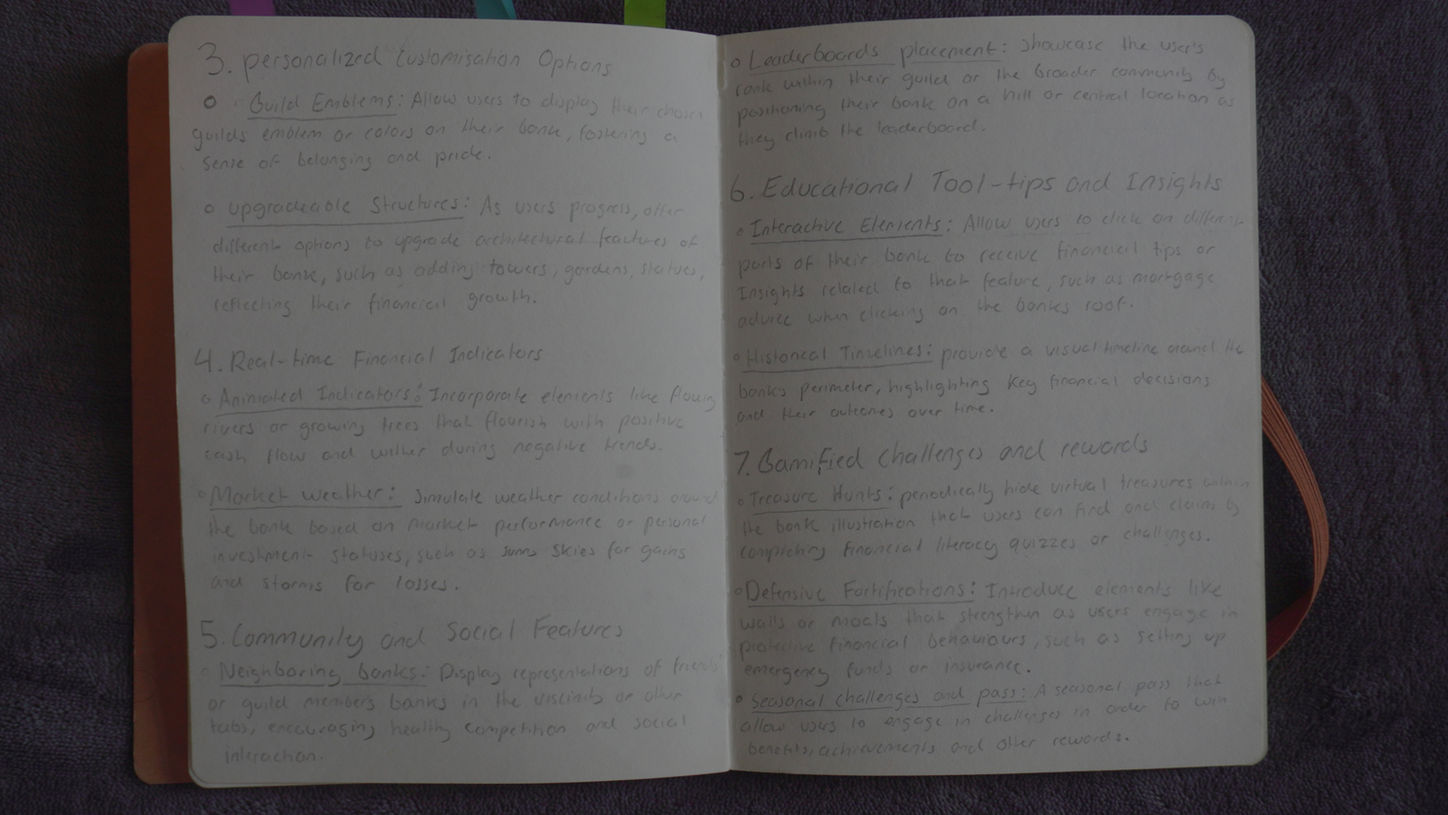 3. personalized Customisation Options
o Guild Emblems: Allow users to display their chosen
guilds emblem or colors on their bank, fostering a
sense of belonging and pride.
o upgradeable Structures: As users progress, offer
different options to upgrade architectural features of
their bank, such as adding towers, gardens, statues,
reflecting their financial growth.
4. Real-time Financial Indicators
o Animated Indicators: Incorporate elements like flowing
rivers or growing trees that flourish with positive
cash flow and wither during negative trends.
o Market weather: Simulate weather conditions around
the bank based on market performance or personal
investment statuses, such as sunny skies for gains
and storms for losses.
5. Community and Social Features
o Neighboring banks: Display representations of friends'
or guild members banks in the viscinity or other
tabs, encouraging healthy competition and social
interaction.
o Leaderboards placement: showcase the user's
rank within their guild or the broader community by
positioning their bank on a hill or central location as
they climb the leaderboard.
6. Educational Tool-tips and Insights
o Interactive Elements: Allow users to click on different
parts of their bank to receive financial tips or
Insights related to that feature, such as mortgage
advice when clicking on the banks roof.
o Historical Timelines: provide a visual timeline around the
banks perimeter, highlighting key financial decisions
and their outcomes over time.
7. Gamified challenges and rewards
o Treasure Hunts: periodically hide virtual treasures within
the bank illustration that users can find and claim by
completing financial literacy quizzes or challenges.
o Defensive Fortifications: Introduce elements like
walls or moats that strengthen as users engage in
protective financial behaviours, such as setting up
emergency funds or insurance.
o Seasonal challenges and pass: A seasonal pass that
allow users to engage in challenges in order to win
benefits, achievements and other rewards.